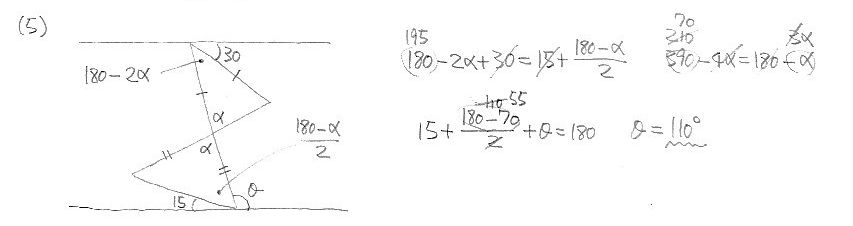 (5)
30
180-2α
α
α
180-α/2
15
θ
195
180-2α+30=15+180-α/2
70
210 3α
390-4α=180-α
110 55
15+180-70/2+θ=180 θ=110°